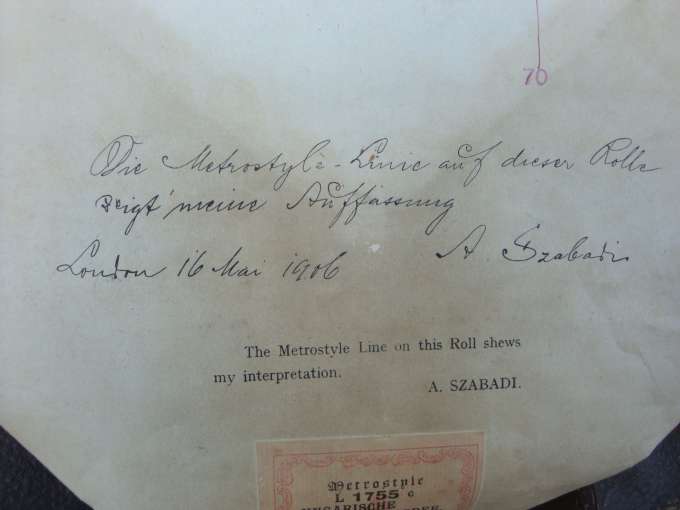 70
Die Metrostyle-Linie auf dieser Rolle
zeigt meine Auffassung
London 16 Mai 1906 A. Szabadi
The Metrostyle Line on this Roll shews
my interpretation.
A. SZABADI.
Metrostyle
L 1755 c
UNGARISCHE